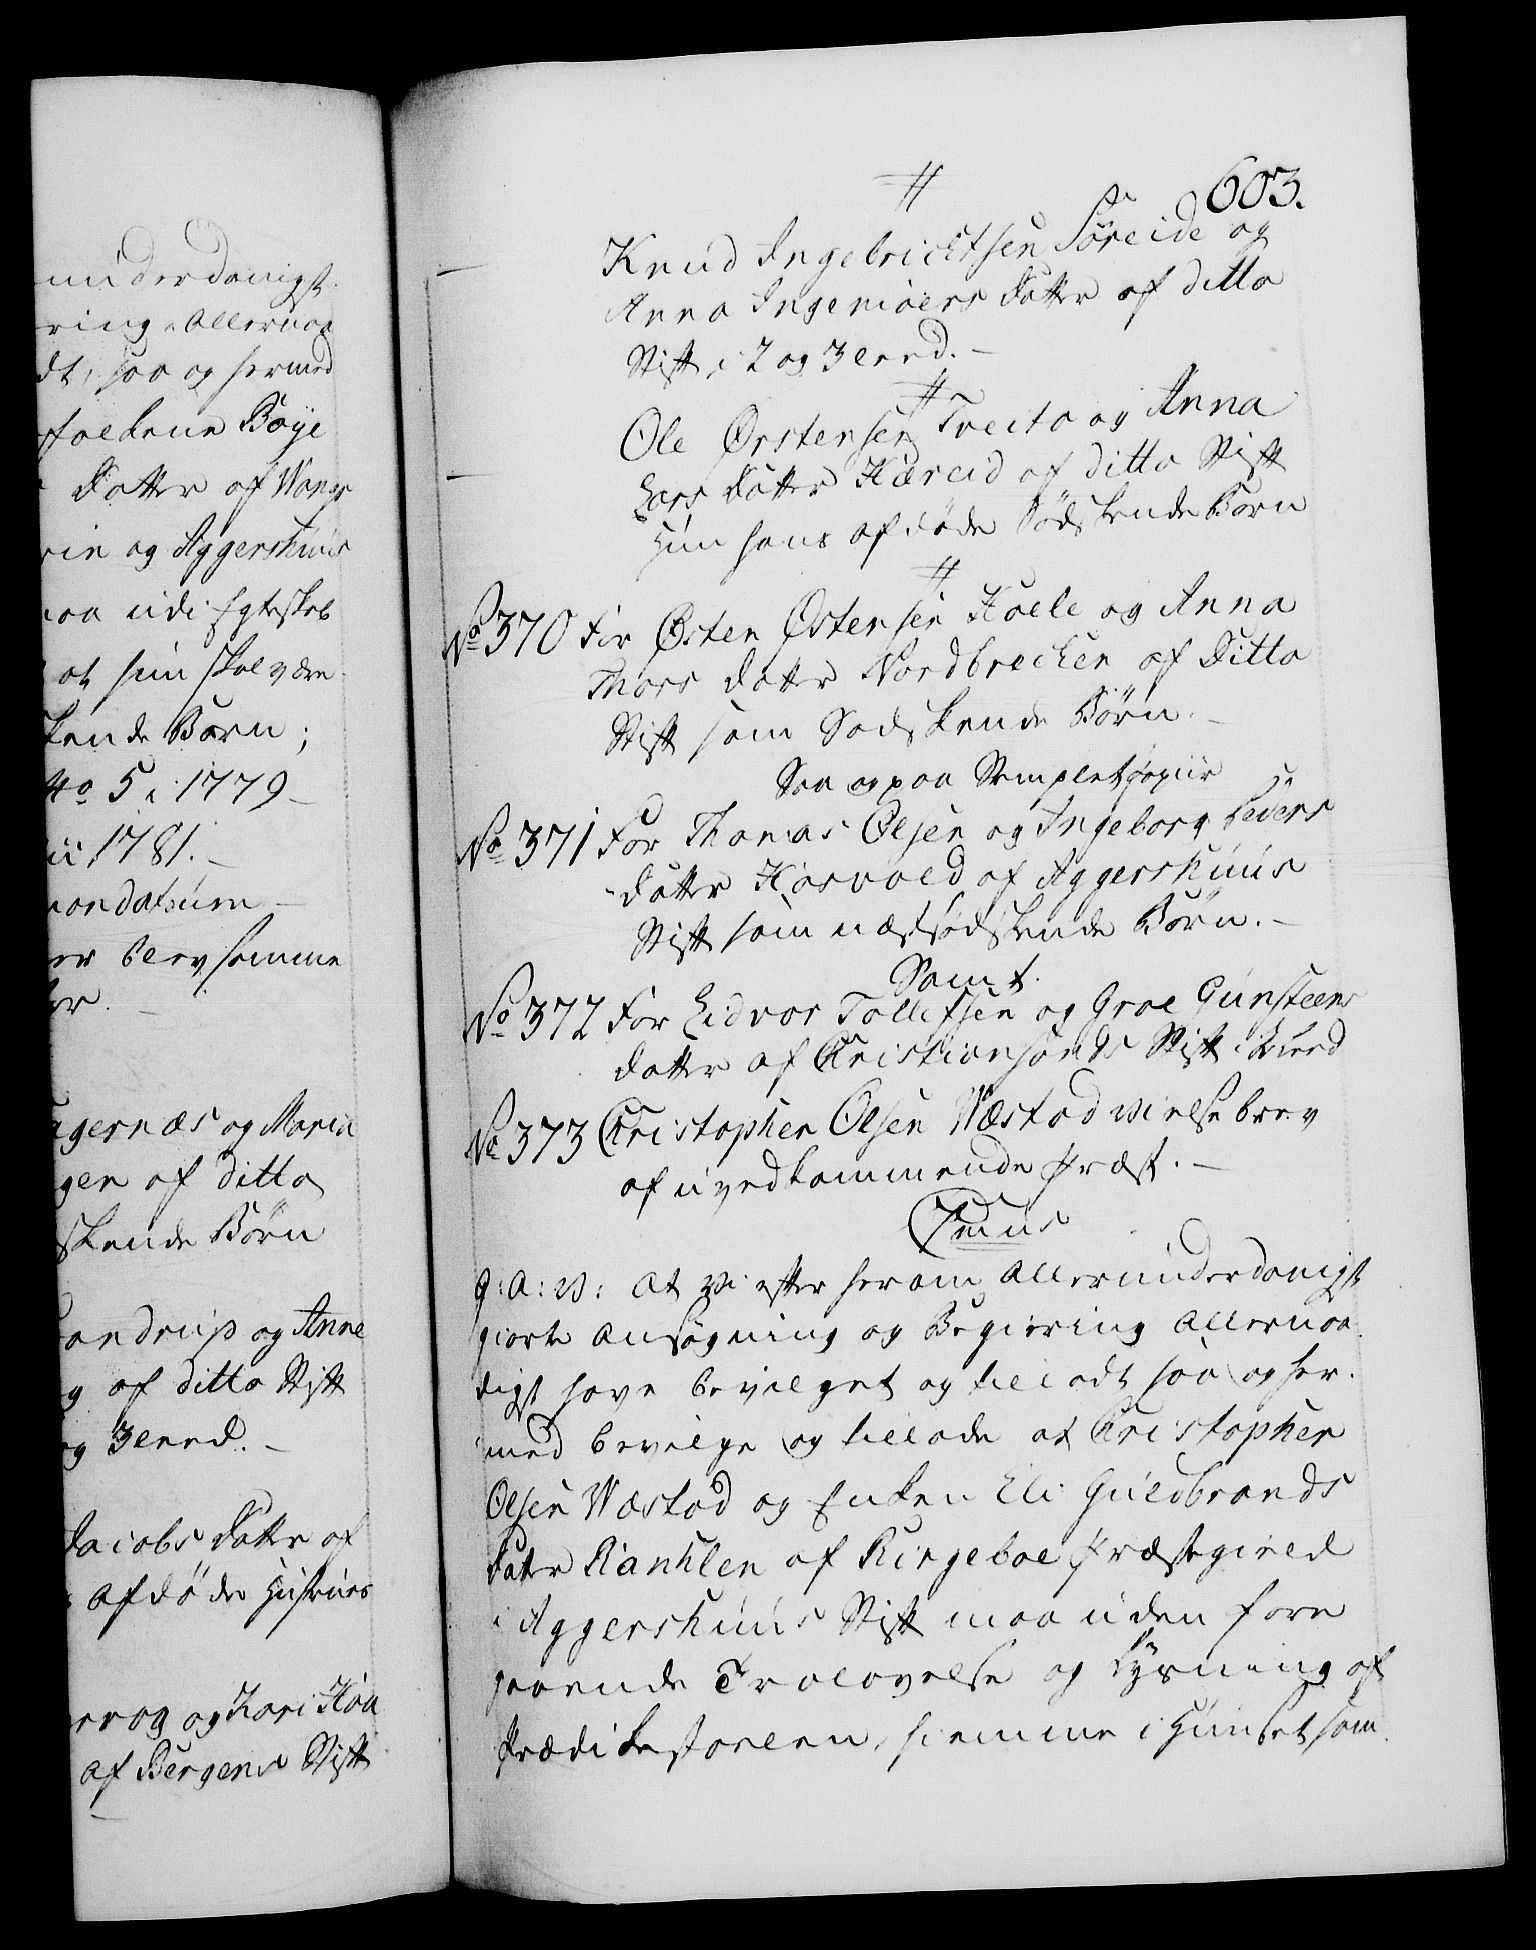 underdanigst
ring Allernaa
dt, saa og hermed
folkene Boye
Datter af Wangs
rie og Aggershuus
maa udi Egteskab
at hun skal være
kende Børn;
40 5 i 1779
1781.
mandatum
er blev samme
er.
agernæs og Maria
gen af ditto
skende Børn
andrup og Anne
g af ditto Stift
og 3 leed.
Jacobs Datter af
afdøde Hustrues
rvog og Kari Haa
af Bergens Stift
603.
#
Knud Ingebrichtsen Søreide og
Anna Ingemoers Datter af ditto
Stift i 2 og 3 leed.
#
Ole Ørstensen Tveito og Anna
Lars Datter Hæreid af ditto Stift
hun hans afdøde Sødskende Barn
#
No 370 For Østen Østensen Hoele og Anna
Thors Datter Nordbrecken af Ditto
Stift som Sødskende Børn.
Saa og paa Stemplet Papiir
No 371 For Thomas Olsen og Ingeborg Peders
datter Hosvold af Aggershuus
Stift som næstsødskende Børn.
Samt.
No 372 For Eidvor Tollefsen og Groe Gunsteens
datter af Christiansands Stift i leed
No 373 Christopher Olsen Wæstad Vielsebrev
af uvedkommende Præst.
G: A: V: At Vi efter herom allerunderdanigst
giorte Ansøgning og Begiering Allernaa
digst have bevilget og tilladt saa og her
med bevilge og tillade at Christopher
Olsen Wæstad og Enken Eli Guldbrands
Datter Ranklen af Ringeboe Præstegield
i Aggershuus Stift maa uden fore
gaaende Trolovelse og Lysning af
Prædikestoelen, hiemme i Huuset som